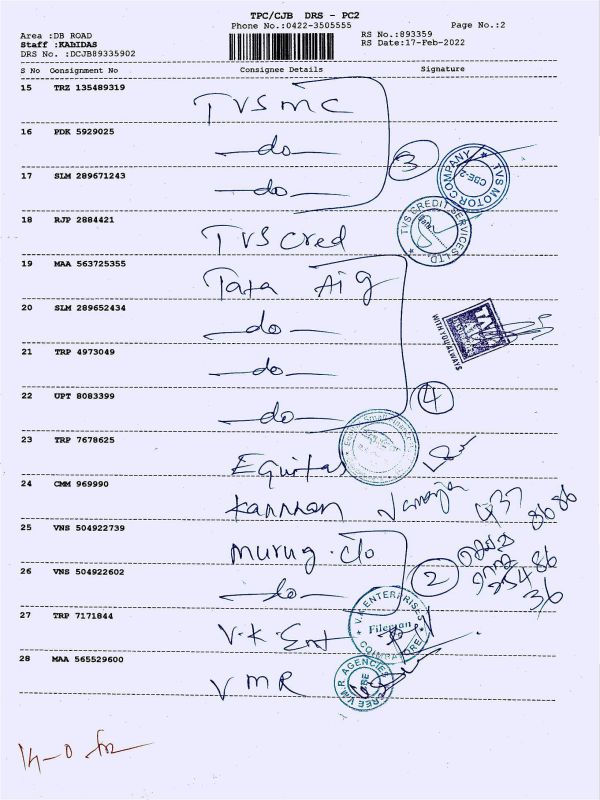 TPC/CJB DRS - PC2
Phone No.:0422-3505555
Page No.:2
Area :DB ROAD
RS No.:893359
Staff :KABIDAS
RS Date:17-Feb-2022
DRS No. :DCJB89335902
S No Consignment No Consignee Details Signature
15 TRZ 135489319 TVS MC
16 PDK 5929025 —do—
3
TVS MOTOR COMPANY
CBE-2
17 SLM 289671243 —do—
18 RJP 2884421 TVS Cred
TVS CREDIT SERVICES LTD
19 MAA 563725355 Tata AIG
20 SLM 289652434 —do—
WITH YOU ALWAYS
21 TRP 4973049 —do—
22 UPT 8083399 —do—
4
23 TRP 7678625 Equitas
24 CMM 969990 Kannan
25 VNS 504922739 Murug. Clo
2
26 VNS 504922602 —do—
27 TRP 7171844 V.K. Ent
V.K ENTERPRISES
COIMBATORE
28 MAA 565529600 VMR
SREE V.M.R. AGENCIES
CBE